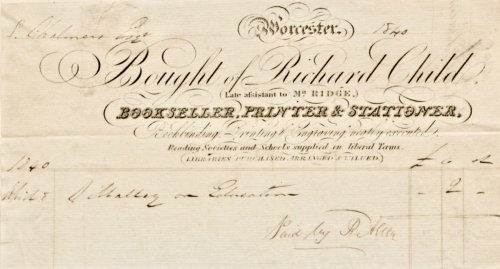 Worcester. 1840
Chalmers Esqr
Bought of Richard Child.
(Late assistant to Mr. RIDGE,)
BOOKSELLER, PRINTER & STATIONER.
Bookbinding, Printing & Engraving neatly executed,
Reading Societies and Schools supplied on liberal Terms.
(LIBRARIES PURCHASED, ARRANGED & VALUED.)
1840 £ s d
on Education - 2 -
Paid by